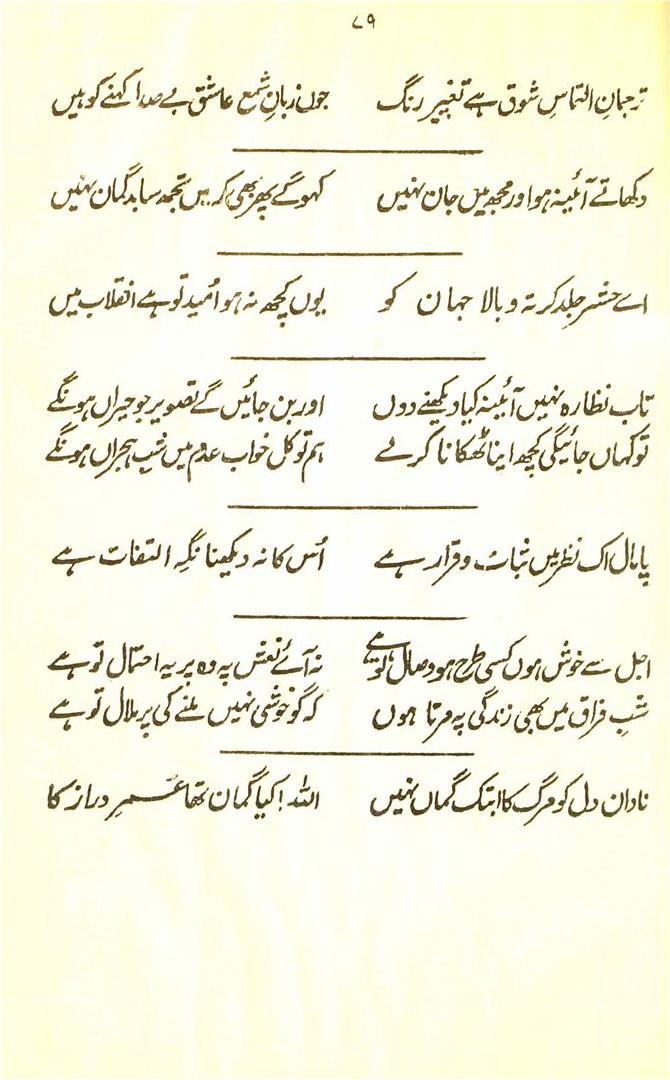 ۷۹
ترجمانِ التماسِ شوق ہے تغییرِ رنگ جوں زبانِ شمع عاشق بے صدا کہنے کو ہیں
دکھاتے آئینہ ہو اور مجھ میں جان نہیں کہو گے پھر بھی کہ میں تجھ سا بدگمان نہیں
اے حشر جلد کر تہ و بالا جہان کو یوں کچھ نہ ہو اُمید تو ہے انقلاب میں
تاب نظارہ نہیں آئینہ کیا دیکھنے دوں اور بن جائیں گے تصویر جو حیراں ہونگے
تو کہاں جائیگی کچھ اپنا ٹھکانا کر لے ہم تو کل خواب عدم میں شبِ ہجراں ہونگے
پامال اک نظر میں ثبات و قرار ہے اُس کا نہ دیکھنا نگہِ التفات ہے
اجل سے خوش ہوں کسی طرح ہو وصال تو ہے نہ آئے نعش پہ وہ پر یہ احتمال تو ہے
شبِ فراق میں بھی زندگی پہ مرتا ہوں کہ گو خوشی نہیں ملنے کی پر ملال تو ہے
نادان دل کو مرگ کا ابتک گماں نہیں اللہ! کیا گمان تھا عمرِ دراز کا